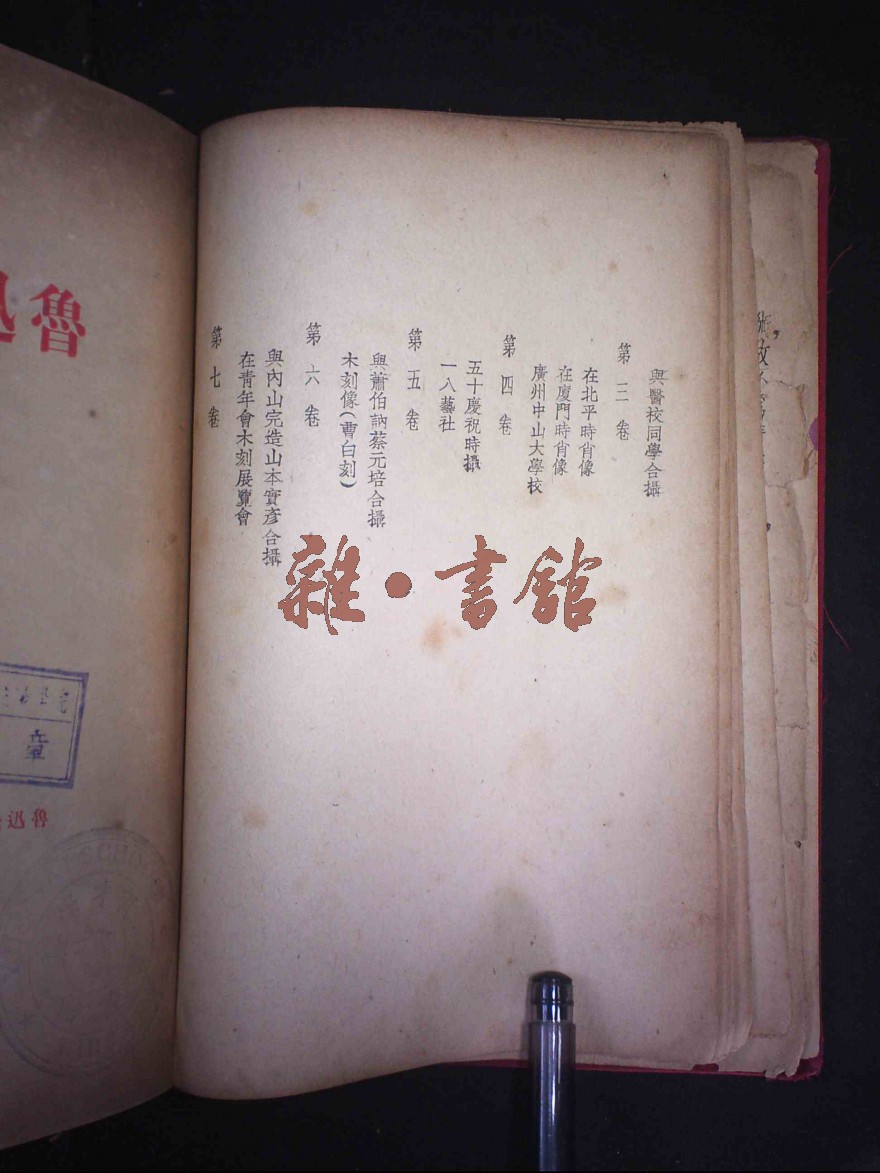 與醫校同學合攝
第三卷
在北平時肖像
在廈門時肖像
廣州中山大學校
第四卷
五十慶祝時攝
一八藝社
第五卷
與蕭伯訥蔡元培合攝
木刻像(曹白刻)
第六卷
與內山完造山本實彥合攝
在青年會木刻展覽會
第七卷
雜·書館
魯迅
章
魯迅